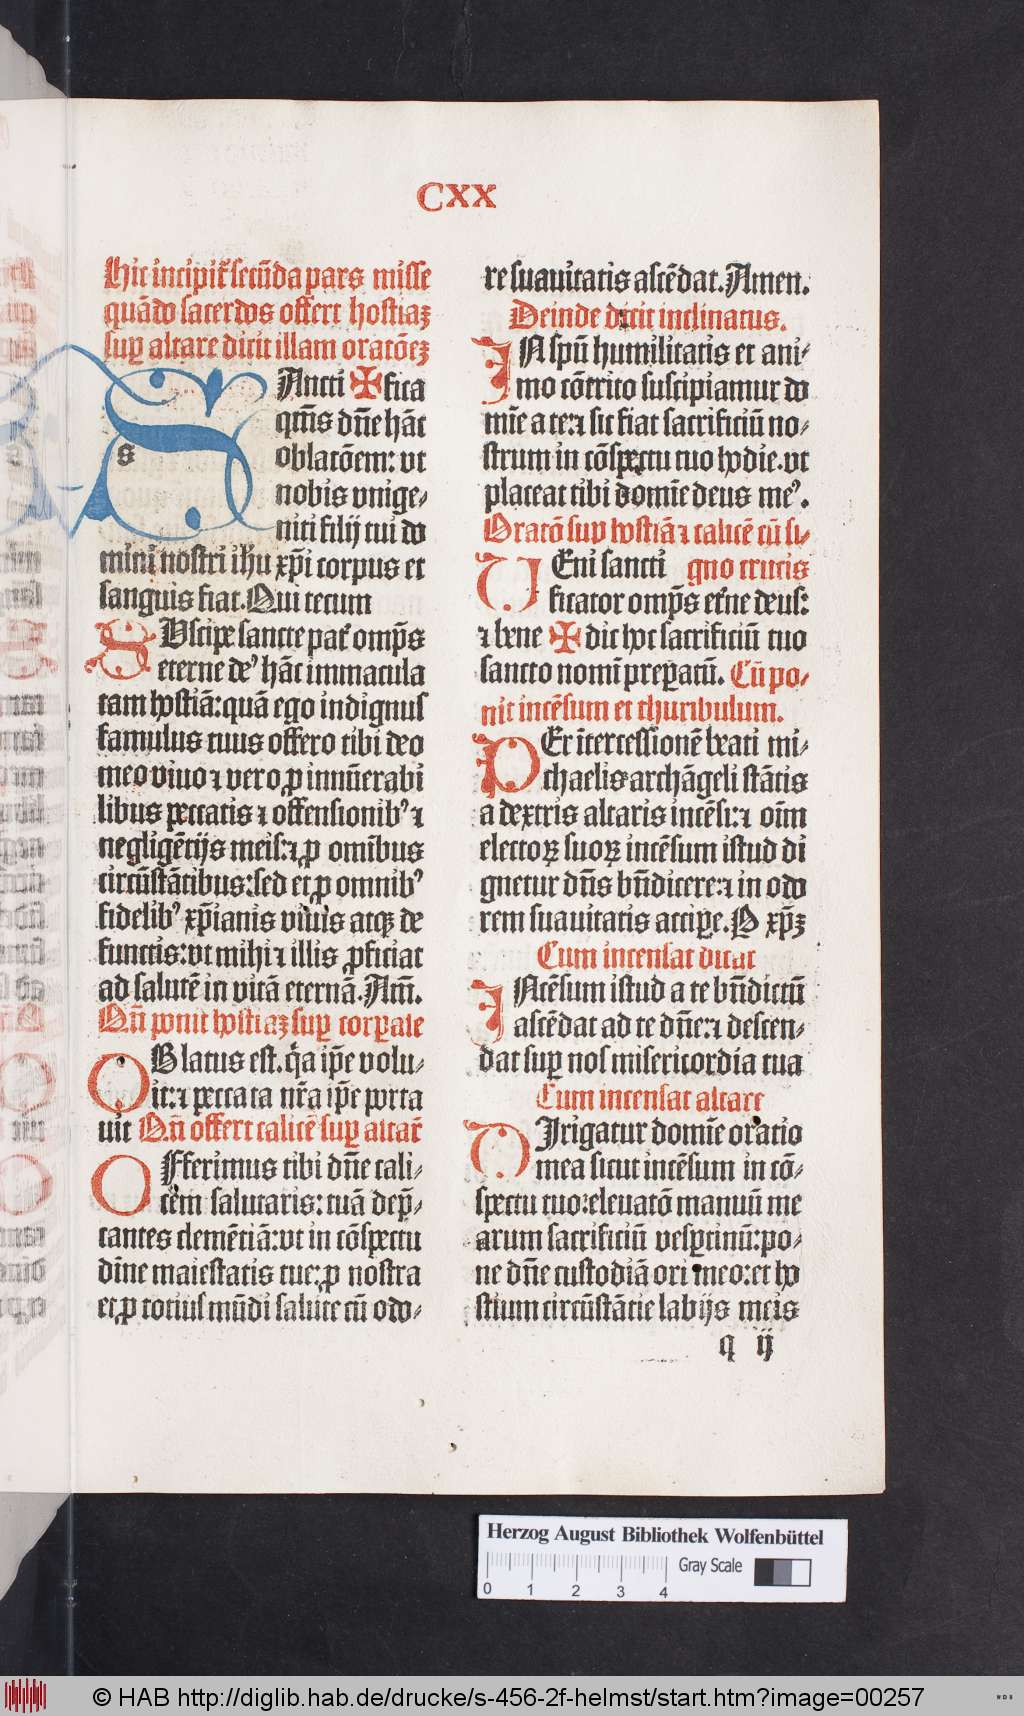 CXX
Hic incipit͛ secūda pars misse
quādo sacerdos offert hostiaꝫ
suꝑ altare dicit illam oratōeꝫ
Ancti ✠ fica
qm̄s dn̄e hāc
s oblatōem: vt
nobis vnige⸗
niti filij tui do
mini nostri ihu xp̄i corpus et
sanguis fiat. Qui tecum
SVscipe sancte pat͛ omp̄s
eterne deꝰ hāc immacula
tam hostiā: quā ego indignus
famulus tuus offero tibi deo
meo viuo ⁊ vero ꝓ innūerabi
libus peccatis ⁊ offensionibꝰ ⁊
negligētijs meis: ⁊ ꝓ omībus
circūstātibus: sed et ꝓ omnibꝰ
fidelibꝰ xp̄ianis viuis atqꝫ de
functis: vt mihi ⁊ illis ꝓficiat
ad salutē in vitā eternā. Am̄.
Qn̄ ponit hostiaꝫ suꝑ corporale
OBlatus est. q̄a ip̄e volu⸗
it: ⁊ peccata nr̄a ip̄e porta
uit Qn̄ offert calicē suꝑ altar̄
OFferimus tibi dn̄e cali⸗
cem salutaris: tuā dep̄⸗
cantes clemētiā: vt in cōspectu
dīne maiestatis tue: ꝓ nostra
et ꝓ totius mūdi salute cū odo⸗
re suauitatis ascēdat. Amen.
Deinde dicit inclinatus.
IN spū humilitatis et ani⸗
mo cōtrito suscipiamur do
mīe a te: ⁊ sic fiat sacrificiū no⸗
strum in cōspectu tuo hodie. vt
placeat tibi domīe deus meꝰ.
Oratō sup hostiā ⁊ calicē cū si⸗
VEni sancti gno crucis
ficator omp̄s et͛ne deus:
⁊ bene ✠ dic hoc sacrificiū tuo
sancto nomī preꝑatū. Cū po⸗
nit incēsum et thuribulum.
PEr ītercessionē beati mi⸗
chaelis archāgeli stātis
a dextris altaris incēsi: ⁊ oīm
electoꝝ suoꝝ incēsum istud di
gnetur dn̄s bn̄dicere: ⁊ in odo
rem suauitatis accipe. P xp̄ꝫ
Cum incensat dicat
INcēsum istud a te bn̄dictū
ascēdat ad te dn̄e: ⁊ descen⸗
dat suꝑ nos misericordia tua
Cum incensat altare
DIrigatur domīe oratio
mea sicut incēsum in cō⸗
spectu tuo: eleuatō manuū me
arum sacrificiū vesꝑtinū: po⸗
ne dn̄e custodiā ori meo: et ho
stium circūstātie labijs meis
q ij
Herzog August Bibliothek Wolfenbüttel
0 1 2 3 4 Gray Scale
© HAB http://diglib.hab.de/drucke/s-456-2f-helmst/start.htm?image=00257